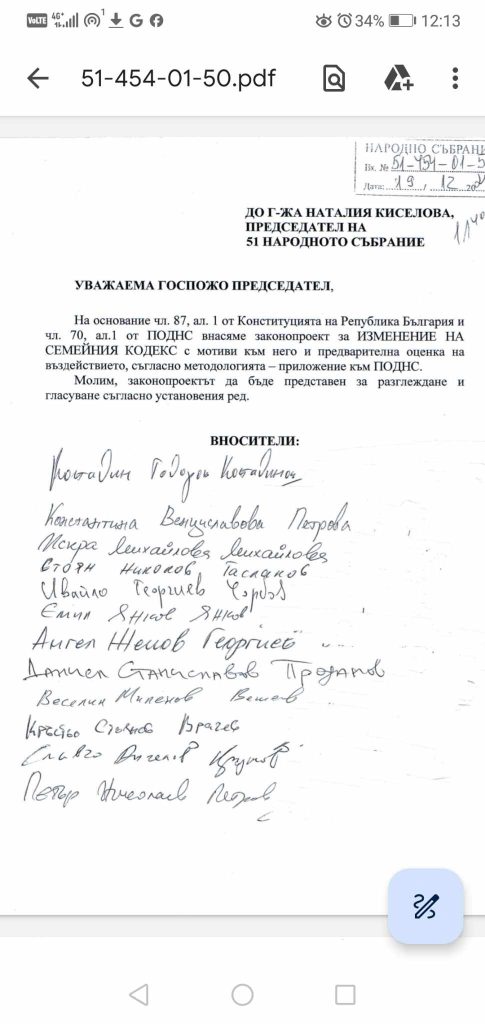 VoLTE 4G+ 1 G 34% 12:13
51-454-01-50.pdf
НАРОДНО СЪБРАНИ
Вх. № 51-454-01-5
Дата: 19 / 12 20
ДО Г-ЖА НАТАЛИЯ КИСЕЛОВА,
ПРЕДСЕДАТЕЛ НА
51 НАРОДНОТО СЪБРАНИЕ
УВАЖАЕМА ГОСПОЖО ПРЕДСЕДАТЕЛ,
На основание чл. 87, ал. 1 от Конституцията на Република България и
чл. 70, ал.1 от ПОДНС внасяме законопроект за ИЗМЕНЕНИЕ НА
СЕМЕЙНИЯ КОДЕКС с мотиви към него и предварителна оценка на
въздействието, съгласно методологията – приложение към ПОДНС.
Молим, законопроектът да бъде представен за разглеждане и
гласуване съгласно установения ред.
ВНОСИТЕЛИ:
Костадин Тодоров Костадинов
Константина Венциславова Петрова
Искра Михайлова Михайлова
Стоян Николов Таслаков
Ивайло Георгиев Чорбов
Емил Янков Янков
Ангел Жеков Георгиев
Даниел Станиславов Проданов
Веселин Миленов Вешев
Кръстьо Стоянов Врачев
Славчо Крумов
Петър Николаев Петров